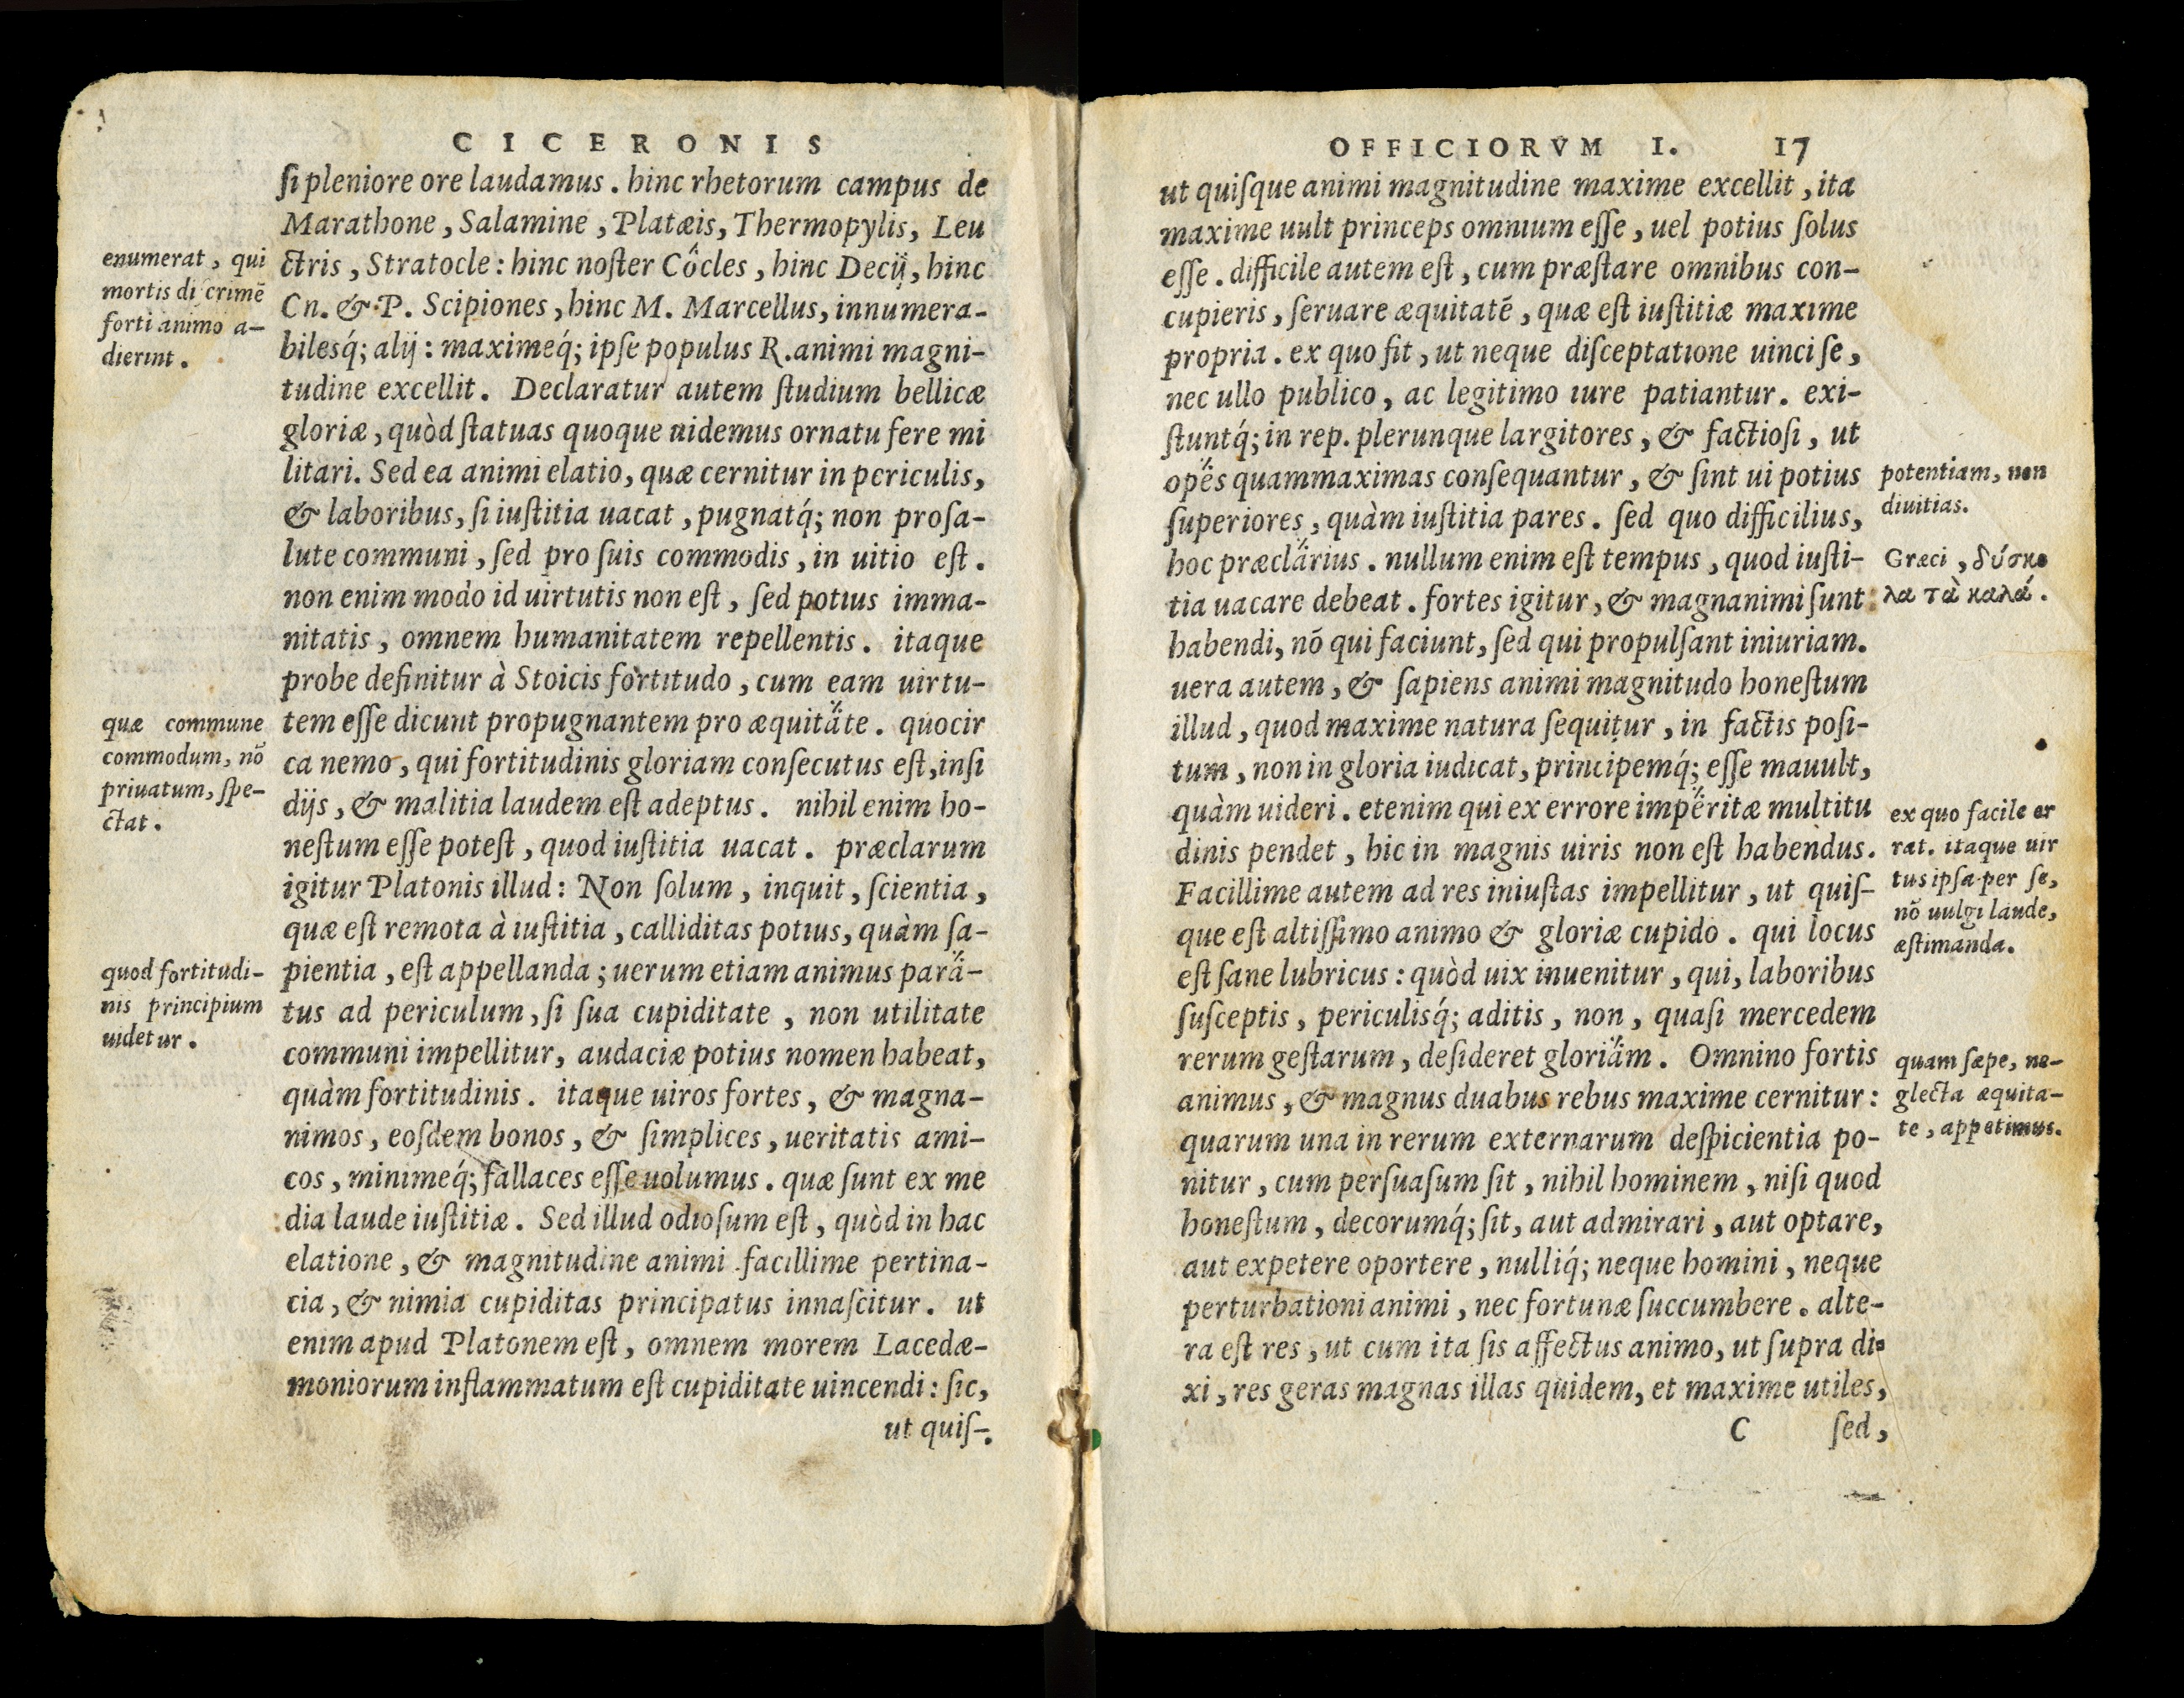 CICERONIS
ſi pleniore ore laudamus. hinc rhetorum campus de
Marathone, Salamine, Platæis, Thermopylis, Leu
ctris, Stratocle: hinc noſter Côcles, hinc Decij, hinc
Cn. & P. Scipiones, hinc M. Marcellus, innumera-
bilesq́; alij: maximeq́; ipſe populus R. animi magni-
tudine excellit. Declaratur autem ſtudium bellicæ
gloriæ, quòd ſtatuas quoque uidemus ornatu fere mi
litari. Sed ea animi elatio, quæ cernitur in periculis,
& laboribus, ſi iuſtitia uacat, pugnatq́; non pro ſa-
lute communi, ſed pro ſuis commodis, in uitio eſt.
non enim modo id uirtutis non eſt, ſed potius imma-
nitatis, omnem humanitatem repellentis. itaque
probe definitur à Stoicis fortitudo, cum eam uirtu-
tem eſſe dicunt propugnantem pro æquitate. quocir
ca nemo, qui fortitudinis gloriam conſecutus eſt, inſi
dijs, & malitia laudem eſt adeptus. nihil enim ho-
neſtum eſſe poteſt, quod iuſtitia uacat. præclarum
igitur Platonis illud: Non ſolum, inquit, ſcientia,
quæ eſt remota à iuſtitia, calliditas potius, quàm ſa-
pientia, eſt appellanda; uerum etiam animus para-
tus ad periculum, ſi ſua cupiditate, non utilitate
communi impellitur, audaciæ potius nomen habeat,
quàm fortitudinis. itaque uiros fortes, & magna-
nimos, eoſdem bonos, & ſimplices, ueritatis ami-
cos, minimeq́; fallaces eſſe uolumus. quæ ſunt ex me
dia laude iuſtitiæ. Sed illud odioſum eſt, quòd in hac
elatione, & magnitudine animi facillime pertina-
cia, & nimia cupiditas principatus innaſcitur. ut
enim apud Platonem eſt, omnem morem Lacedæ-
moniorum inflammatum eſt cupiditate uincendi: ſic,
ut quiſ-
enumerat, qui
mortis diſcrimē
forti animo a-
dierint.
quæ commune
commodum, nō
priuatum, ſpe-
ctat.
quod fortitudi-
nis principium
uidetur.
OFFICIORVM I. 17
ut quiſque animi magnitudine maxime excellit, ita
maxime uult princeps omnium eſſe, uel potius ſolus
eſſe. difficile autem eſt, cum præſtare omnibus con-
cupieris, ſeruare æquitatē, quæ eſt iuſtitiæ maxime
propria. ex quo fit, ut neque diſceptatione uinci ſe,
nec ullo publico, ac legitimo iure patiantur. exi-
ſtuntq́; in rep. plerunque largitores, & factioſi, ut
opes quammaximas conſequantur, & ſint ui potius
ſuperiores, quàm iuſtitia pares. ſed quo difficilius,
hoc præclarius. nullum enim eſt tempus, quod iuſti-
tia uacare debeat. fortes igitur, & magnanimi ſunt
habendi, nō qui faciunt, ſed qui propulſant iniuriam.
uera autem, & ſapiens animi magnitudo honeſtum
illud, quod maxime natura ſequitur, in factis poſi-
tum, non in gloria iudicat, principemq́; eſſe mauult,
quàm uideri. etenim qui ex errore imperitæ multitu
dinis pendet, hic in magnis uiris non eſt habendus.
Facillime autem ad res iniuſtas impellitur, ut quiſ-
que eſt altiſſimo animo & gloriæ cupido. qui locus
eſt ſane lubricus: quòd uix inuenitur, qui, laboribus
ſuſceptis, periculisq́; aditis, non, quaſi mercedem
rerum geſtarum, deſideret gloriam. Omnino fortis
animus, & magnus duabus rebus maxime cernitur:
quarum una in rerum externarum deſpicientia po-
nitur, cum perſuaſum ſit, nihil hominem, niſi quod
honeſtum, decorumq́; ſit, aut admirari, aut optare,
aut expetere oportere, nulliq́; neque homini, neque
perturbationi animi, nec fortunæ ſuccumbere. alte-
ra eſt res, ut cum ita ſis affectus animo, ut ſupra di-
xi, res geras magnas illas quidem, et maxime utiles,
C ſed,
potentiam, non
diuitias.
Græci, δύσκο
λα τὰ καλά.
ex quo facile er
rat. itaque uir
tus ipſa per ſe,
nō uulgi laude,
æſtimanda.
quam ſæpe, ne-
glecta æquita-
te, appetimus.